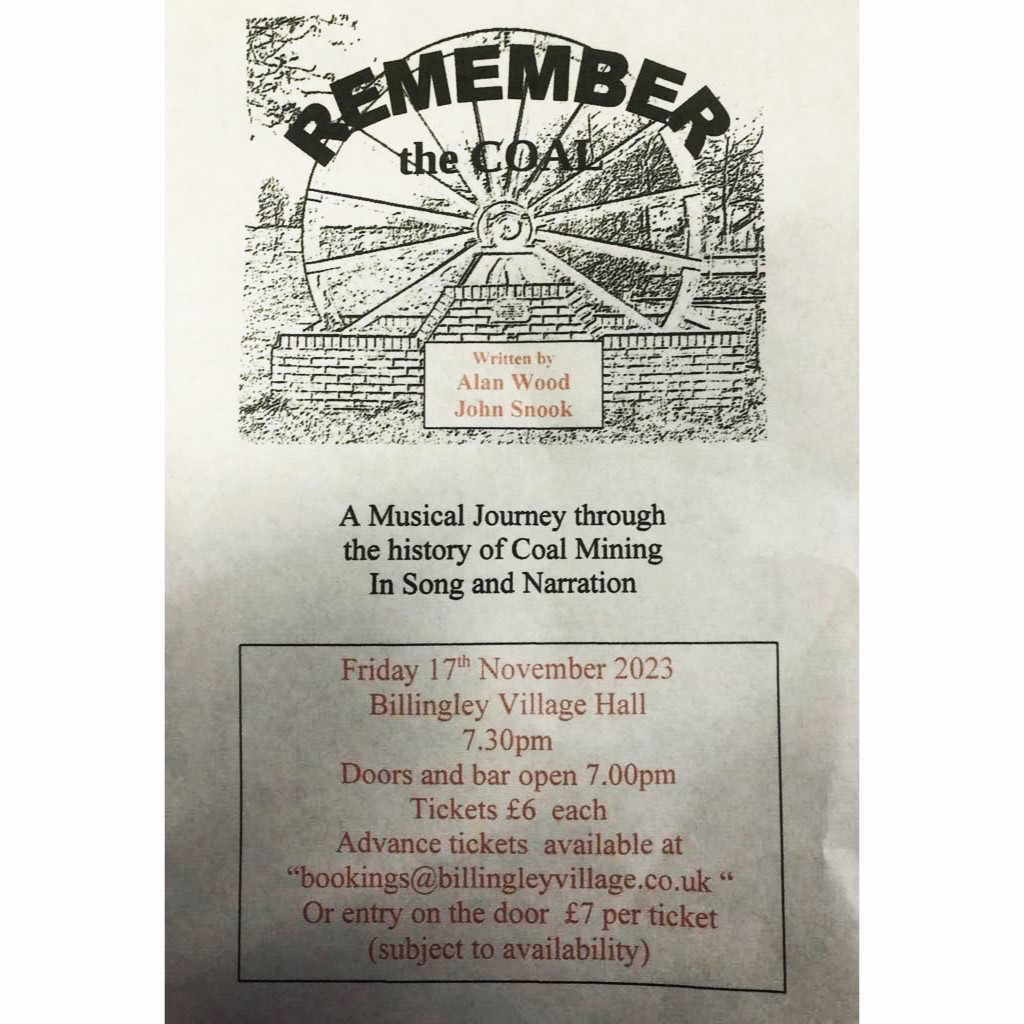 REMEMBER
the COAL
Written by
Alan Wood
John Snook
A Musical Journey through
the history of Coal Mining
In Song and Narration
Friday 17th November 2023
Billingley Village Hall
7.30pm
Doors and bar open 7.00pm
Tickets £6 each
Advance tickets available at
“bookings@billingleyvillage.co.uk “
Or entry on the door £7 per ticket
(subject to availability)